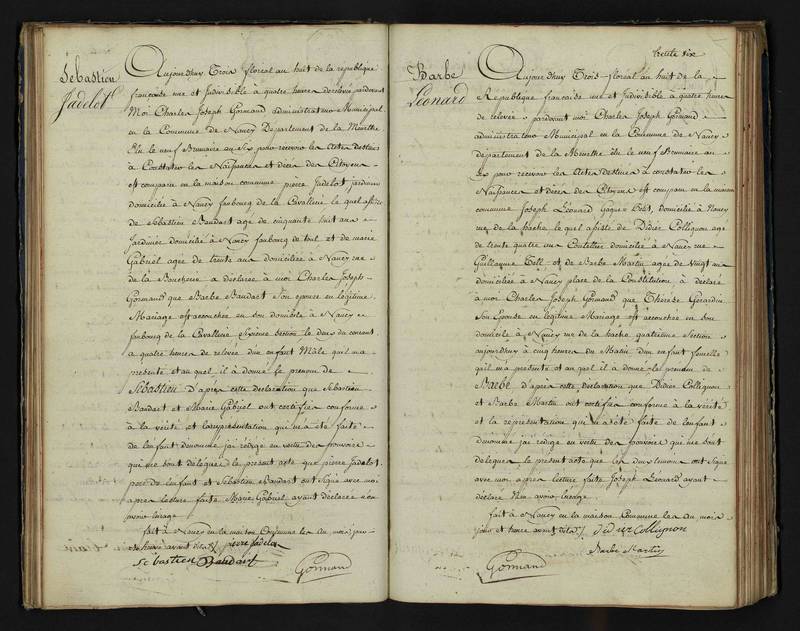 Sébastien
Jadelot
Aujourdhuy Trois floreal an huit de la republique
francaise une et Indivisible à quatre heures de relevée pardevant
Moi Charles Joseph Gormand administrateur Municipal
en la Commune de Nancy Departement de la Meurthe
Elu le neuf Brumaire an Six pour recevoir les Actes destinés
à Constater les Naissances et décès des Citoyens
est comparu en la maison commune pierre Jadelot jardinier
domicilié à Nancy faubourg de la Cavallerie le quel assisté
de Sébastien Baudart age de cinquante huit ans
Jardinier domicilié à Nancy faubourg de toul et de marie
Gabriel age de trente ans domiciliée à Nancy rue
de la Boucherie a déclaré à moi Charles Joseph
Gormand que Barbe Baudart Son epouse en légitime
Mariage est accouchée en son domicile à Nancy
faubourg de la Cavallerie Sixieme Section le deux du courant
a quatre heures de relevée d'un enfant Mâle qu'il m'a
présenté et auquel il à donné le prenom de
Sébastien d'après cette déclaration que Sébastien
Baudart et Marie Gabriel ont certifiée conforme
à la vérité et la représentation qui m'a été faite
de l'enfant denommé j'ai rédigé en vertu des pouvoirs
qui me sont delegués le present acte que pierre Jadelot
pere de l'enfant et Sébastien Baudart ont Signé avec moi
apres lecture faite Marie Gabriel ayant déclarée n'en
avoir l'usage
fait à Nancy en la maison Commune les an mois jour
et heure avant dits pierre Jadelot
Sébastien Baudart Gormand
trente six
Barbe
Léonard
Aujourdhuy Trois floreal an huit de la
Republique francaise une et Indivisible à quatre heures
de relevée pardevant moi Charles Joseph Gormand
administrateur Municipal en la Commune de Nancy
département de la Meurthe élu le neuf Brumaire an
Six pour recevoir les Actes destinés à constater les
Naissances et décès des Citoyens est comparu en la maison
commune Joseph Léonard domicilié à Nancy
rue de la hache le quel assisté de Didier Collignon age
de trente quatre ans Coutellier domicilié à Nancy rue
Guillaume Tell et de Barbe Martin agée de vingt ans
domiciliée à Nancy place de la Constitution à déclaré
à moi Charles Joseph Gormand que Thérese Gerardin
Son Epouse en légitime Mariage est accouchée en son
domicile à Nancy rue de la hache quatrieme Section
aujourdhuy à cinq heures du Matin d'un enfant femelle
qu'il m'a présenté et auquel il à donné le prenom de
Barbe d'après cette déclaration que Didier Collignon
et Barbe Martin ont certifiée conforme à la vérité
et la représentation qui m'a été faite de l'enfant
dénommé j'ai rédigé en vertu des pouvoirs qui me sont
delegués le present acte que les deux témoins ont Signé
avec moi après lecture faite Joseph Léonard ayant
déclaré n'en avoir l'usage
fait à Nancy en la maison Commune les an mois
jour et heure avant dits Didier Collignon
Barbe Martin
Gormand